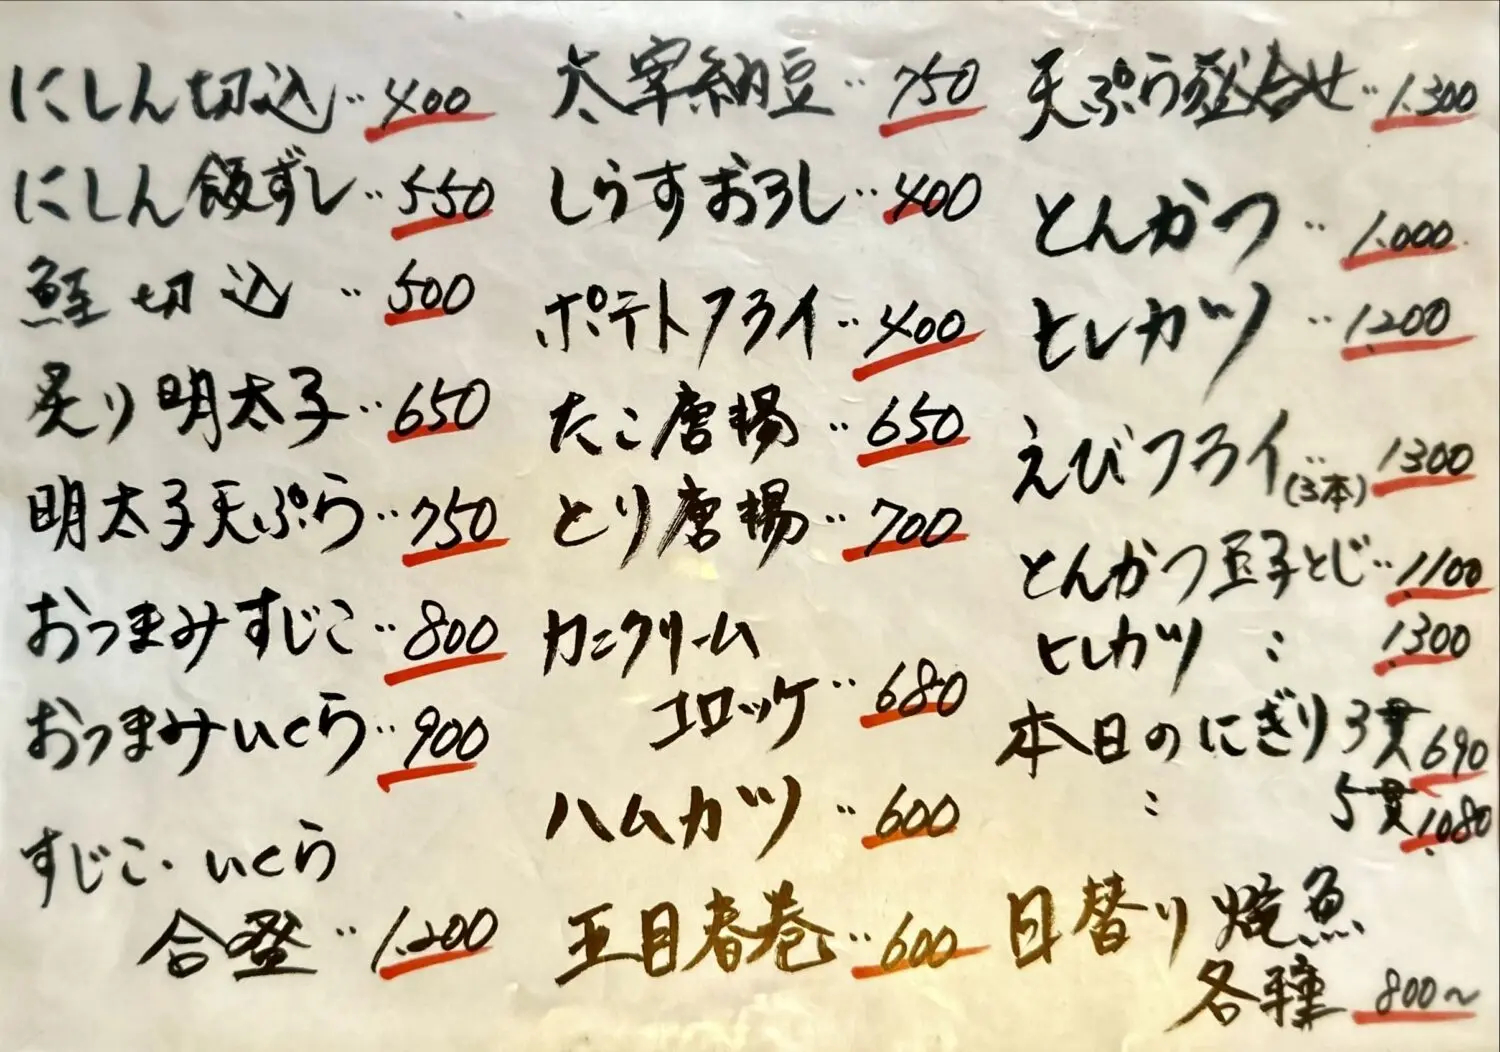 にしん切込‥400
にしん飯ずし‥550
鮭切込‥500
炙り明太子‥650
明太子天ぷら‥750
おつまみすじこ‥800
おつまみいくら‥900
すじこ・いくら
合盛‥1.200
太宰納豆‥750
しらすおろし‥400
ポテトフライ‥400
たこ唐揚‥650
とり唐揚‥700
カニクリーム
コロッケ‥680
ハムカツ‥600
五目春巻‥600
天ぷら盛合せ‥1.300
とんかつ‥1.000
ヒレカツ‥1.200
えびフライ(3本)‥1300
とんかつ玉子とじ‥1.100
ヒレカツ 〃 1.300
本日のにぎり3貫690
〃 5貫1.080
日替り焼魚
各種 800〜